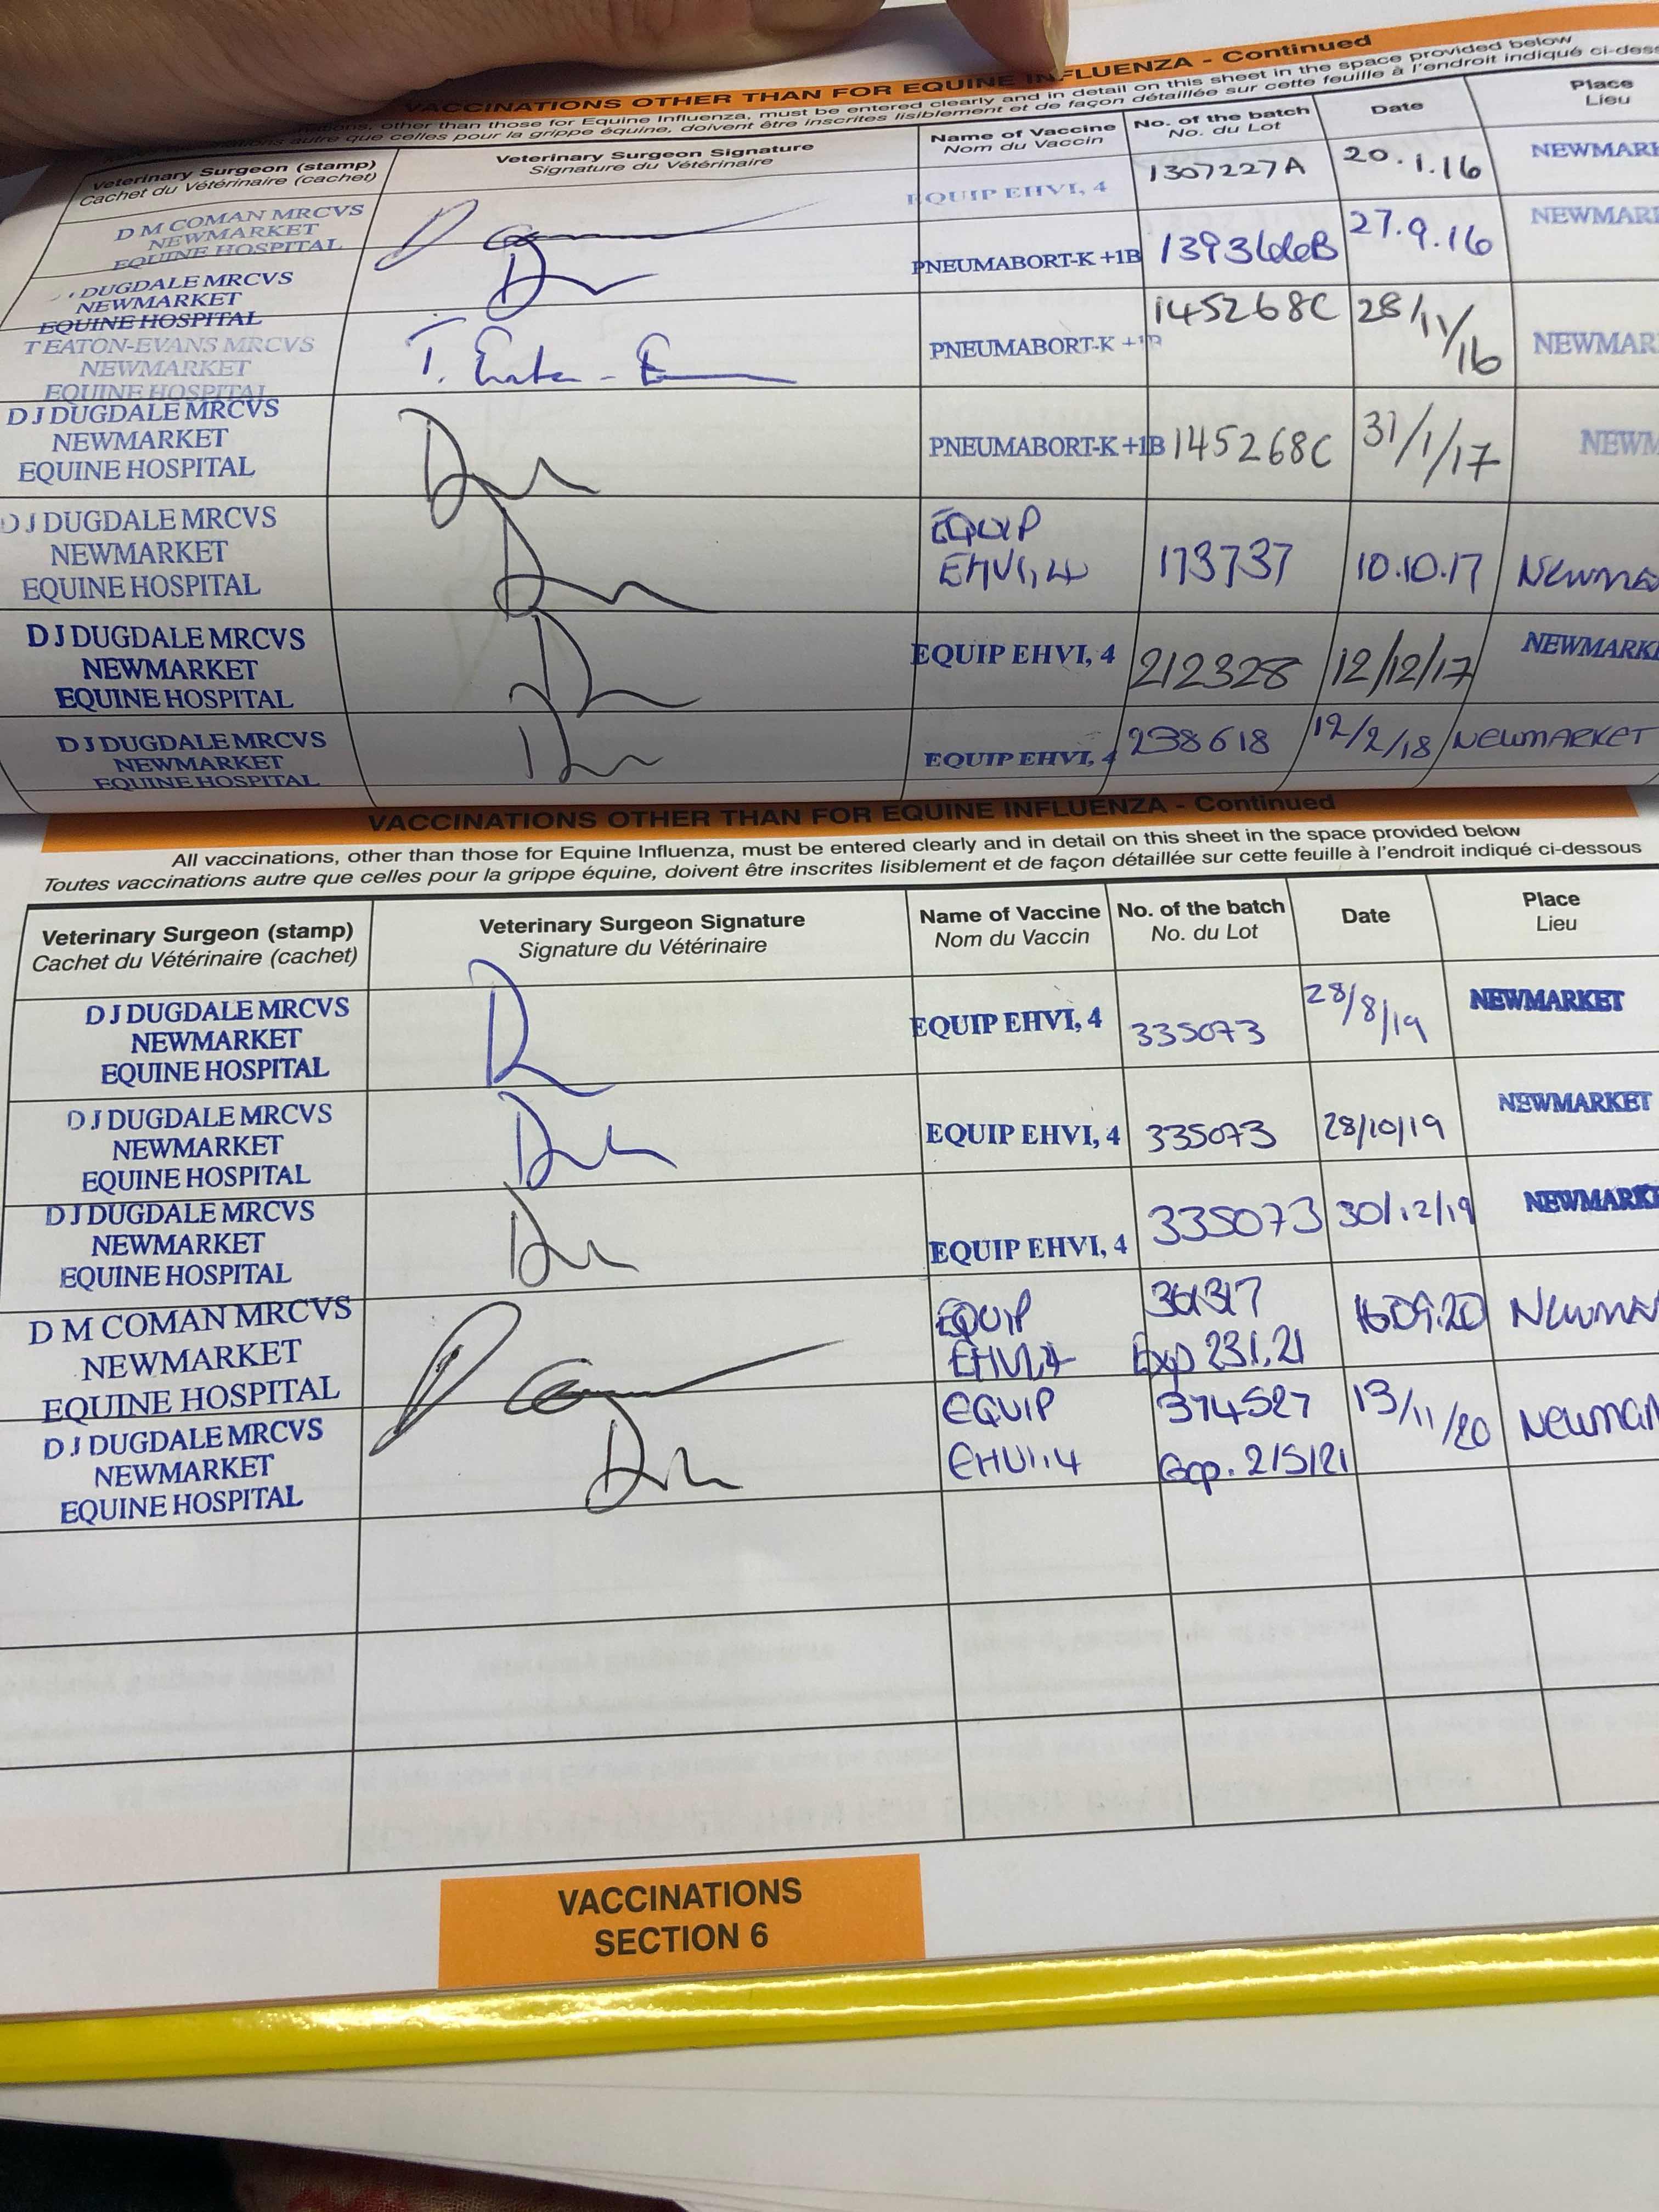 VACCINATIONS OTHER THAN FOR EQUINE INFLUENZA - Continued
other than those for Equine Influenza, must be entered clearly and in detail on this sheet in the space provided below
autre que celles pour la grippe équine, doivent être inscrites lisiblement et de façon détaillée sur cette feuille à l'endroit indiqué ci-dess
Veterinary Surgeon (stamp) Veterinary Surgeon Signature Name of Vaccine No. of the batch Date Place
Cachet du Vétérinaire (cachet) Signature du Vétérinaire Nom du Vaccin No. du Lot Lieu
D M COMAN MRCVS EQUIP EHVI, 4 1307227A 20.1.16 NEWMARK
NEWMARKET
EQUINE HOSPITAL
DUGDALE MRCVS PNEUMABORT-K +1B 139366B 27.9.16 NEWMARK
NEWMARKET
EQUINE HOSPITAL
T EATON-EVANS MRCVS T. Eaton-E PNEUMABORT-K +1B 145268C 28/11/16 NEWMAR
NEWMARKET
EQUINE HOSPITAL
D J DUGDALE MRCVS PNEUMABORT-K +1B 145268C 31/1/17 NEWM
NEWMARKET
EQUINE HOSPITAL
D J DUGDALE MRCVS EQUIP
NEWMARKET EHV1,4 173737 10.10.17 Newma
EQUINE HOSPITAL
D J DUGDALE MRCVS EQUIP EHVI, 4 212328 12/12/17 NEWMARKE
NEWMARKET
EQUINE HOSPITAL
D J DUGDALE MRCVS EQUIP EHVI, 4 238618 12/2/18 NEWMARKET
NEWMARKET
EQUINE HOSPITAL
VACCINATIONS OTHER THAN FOR EQUINE INFLUENZA - Continued
All vaccinations, other than those for Equine Influenza, must be entered clearly and in detail on this sheet in the space provided below
Toutes vaccinations autre que celles pour la grippe équine, doivent être inscrites lisiblement et de façon détaillée sur cette feuille à l'endroit indiqué ci-dessous
Veterinary Surgeon (stamp) Veterinary Surgeon Signature Name of Vaccine No. of the batch Date Place
Cachet du Vétérinaire (cachet) Signature du Vétérinaire Nom du Vaccin No. du Lot Lieu
D J DUGDALE MRCVS EQUIP EHVI, 4 335073 28/8/19 NEWMARKET
NEWMARKET
EQUINE HOSPITAL
D J DUGDALE MRCVS EQUIP EHVI, 4 335073 28/10/19 NEWMARKET
NEWMARKET
EQUINE HOSPITAL
D J DUGDALE MRCVS EQUIP EHVI, 4 335073 30/12/19 NEWMARKE
NEWMARKET
EQUINE HOSPITAL
D M COMAN MRCVS EQUIP 361317 16.09.20 Newmar
NEWMARKET EHV1,4 Exp 23.1.21
EQUINE HOSPITAL
D J DUGDALE MRCVS EQUIP 374527 13/11/20 Newmar
NEWMARKET EHV1,4 Exp. 2/5/21
EQUINE HOSPITAL
VACCINATIONS
SECTION 6